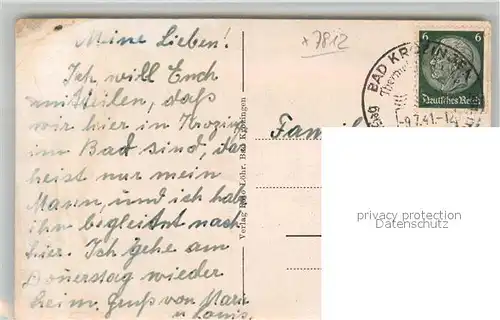 Meine Lieben!
Ich will Euch
mitteilen, daß
wir hier in Krozingen
im Bad sind, das
heist nur mein
Mann, und ich habe
ihn begleitet nach
hier. Ich gehe am
Donerstag wieder
heim. Gruß von Marie
u Louis.
Verlag Lohr, Bad Krozingen
x7812
BAD KROZINGEN
-9.7.41.-12
6 6
Deutsches Reich
Famil
privacy protection
Datenschutz